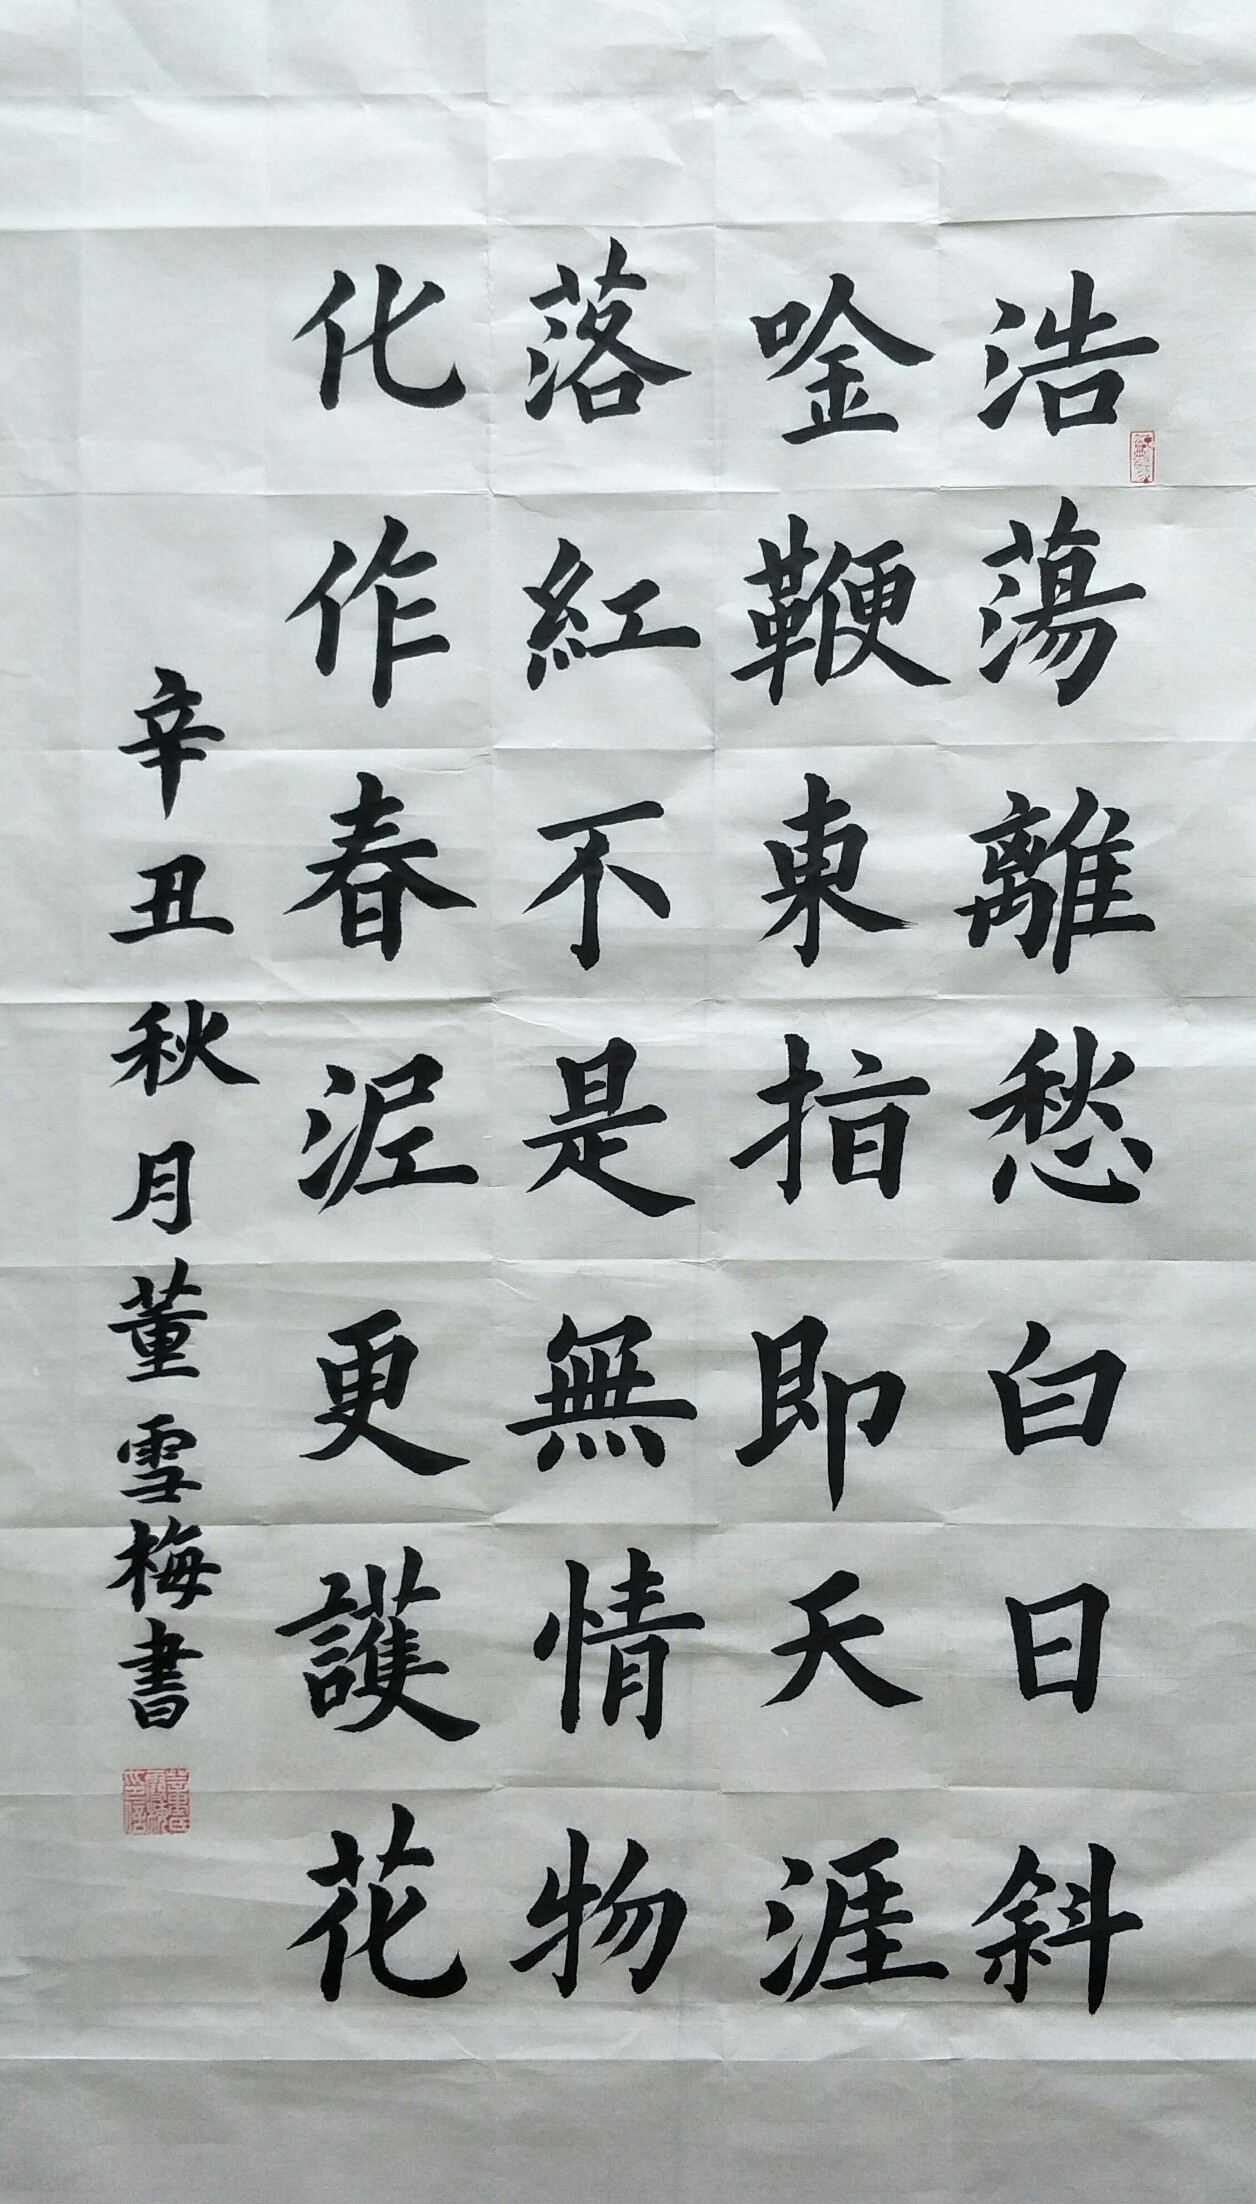 浩蕩離愁白日斜
唫鞭東指即天涯
落紅不是無情物
化作春泥更護花
辛丑秋月董雪梅書